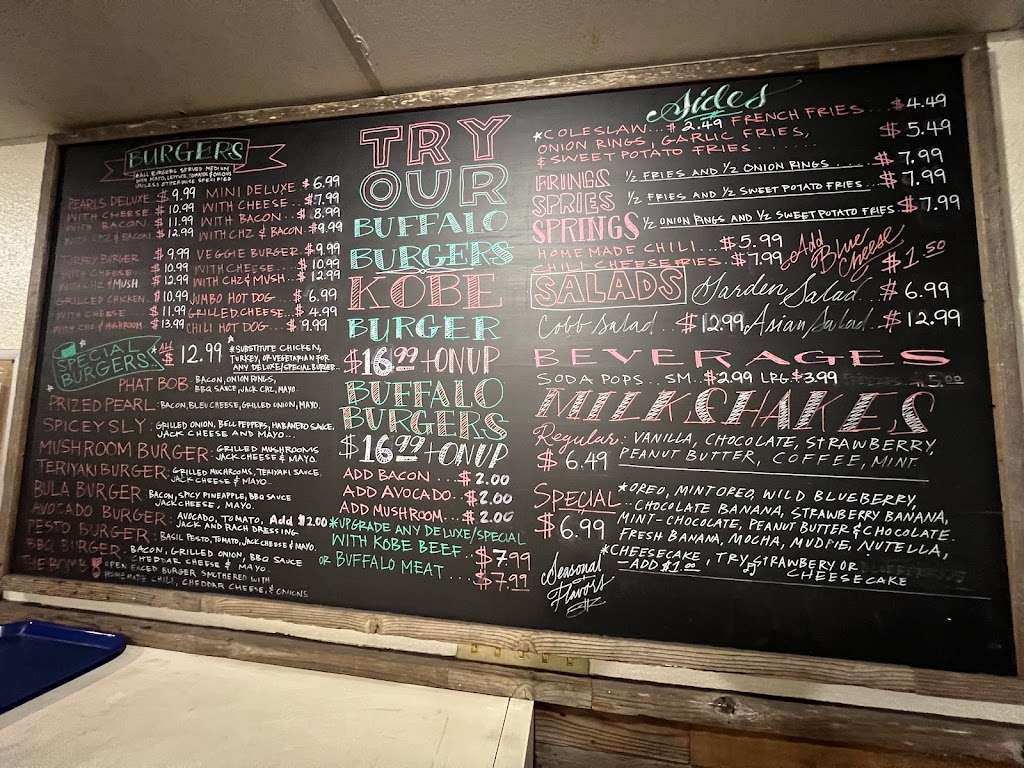 BURGERS
*ALL BURGERS SERVED MEDIUM
WITH MAYO, LETTUCE, TOMATOES & ONIONS
UNLESS OTHERWISE SPECIFIED
PEARLS DELUXE $9.99
WITH CHEESE $10.99
WITH BACON $11.99
WITH CHZ & BACON $12.99
MINI DELUXE $6.99
WITH CHEESE... $7.99
WITH BACON... $8.99
WITH CHZ & BACON.. $9.99
TURKEY BURGER $9.99
WITH CHEESE $10.99
WITH CHZ & MUSH $12.99
GRILLED CHICKEN.. $10.99
WITH CHEESE $11.99
WITH CHZ & MUSHROOM $13.99
VEGGIE BURGER.. $9.99
WITH CHEESE... $10.99
WITH CHZ & MUSH.. $12.99
JUMBO HOT DOG... $6.99
GRILLED CHEESE.. $4.99
CHILI HOT DOG... $9.99
SPECIAL BURGERS
ALL $12.99
*SUBSTITUTE CHICKEN,
TURKEY, OR VEGETARIAN FOR
ANY DELUXE/SPECIAL BURGER...
PHAT BOB: BACON, ONION RINGS,
BBQ SAUCE, JACK CHZ, MAYO.
PRIZED PEARL: BACON, BLEU CHEESE, GRILLED ONION, MAYO.
SPICEY SLY: GRILLED ONION, BELL PEPPERS, HABANERO SAUCE,
JACK CHEESE AND MAYO...
MUSHROOM BURGER: GRILLED MUSHROOMS
JACK CHEESE & MAYO.
TERIYAKI BURGER: GRILLED MUSHROOMS, TERIYAKI SAUCE
JACK CHEESE & MAYO..
BULA BURGER: BACON, SPICY PINEAPPLE, BBQ SAUCE
JACK CHEESE, MAYO.
AVOCADO BURGER: AVOCADO, TOMATO, Add $2.00
JACK AND RACH DRESSING
PESTO BURGER: BASIL PESTO, TOMATO, JACK CHEESE & MAYO.
BBQ BURGER: BACON, GRILLED ONION, BBQ SAUCE
CHEDDAR CHEESE & MAYO.
THE BOMB: OPEN FACED BURGER SMOTHERED WITH
HOMEMADE CHILI, CHEDDAR CHEESE, & ONIONS
TRY
OUR
BUFFALO
BURGERS
KOBE
BURGER
$16.99 + ON UP
BUFFALO
BURGERS
$16.99 + ON UP
ADD BACON... $2.00
ADD AVOCADO.. $2.00
ADD MUSHROOM... $2.00
*UPGRADE ANY DELUXE/SPECIAL
WITH KOBE BEEF.. $7.99
OR BUFFALO MEAT.... $7.99
Sides
*COLESLAW...$2.49 FRENCH FRIES... $4.49
ONION RINGS, GARLIC FRIES,
& SWEET POTATO FRIES....... $5.49
FRINGS 1/2 FRIES AND 1/2 ONION RINGS..... $7.99
SPRIES 1/2 FRIES AND 1/2 SWEET POTATO FRIES... $7.99
SPRINGS 1/2 ONION RINGS AND 1/2 SWEET POTATO FRIES. $7.99
HOMEMADE CHILI... $5.99
CHILI CHEESE FRIES... $7.99
Add Blue Cheese $1.50
SALADS Garden Salad... $6.99
Cobb Salad.. $12.99 Asian Salad.. $12.99
BEVERAGES
SODA POPS.. SM.. $2.99 LRG. $3.99 $5.00
MILKSHAKES
Regular: VANILLA, CHOCOLATE, STRAWBERRY,
$6.49 PEANUT BUTTER, COFFEE, MINT
Special: *OREO, MINT OREO, WILD BLUEBERRY,
$6.99 CHOCOLATE BANANA, STRAWBERRY BANANA,
MINT-CHOCOLATE, PEANUT BUTTER & CHOCOLATE.
FRESH BANANA, MOCHA, MUDPIE, NUTELLA,
*CHEESECAKE, TRY STRAWBERY OR
-ADD $1.00 CHEESECAKE
Seasonal
Flavors